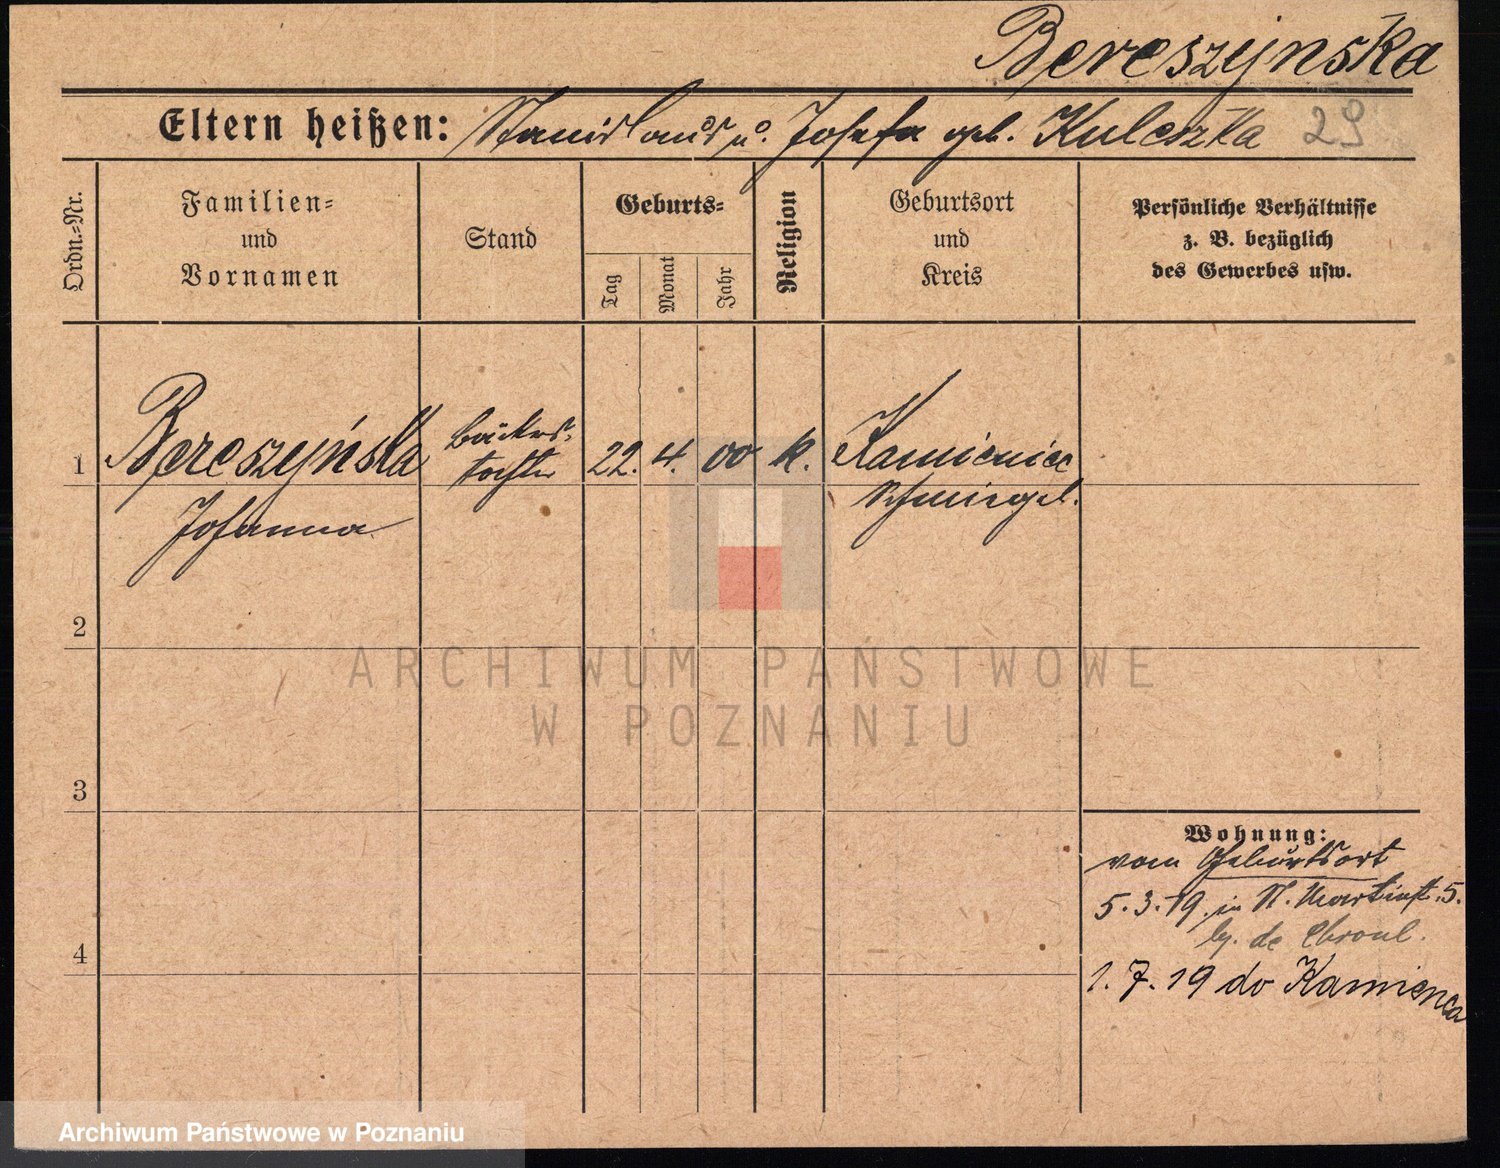 Bereszyńska
29
Eltern heißen: Stanislaus u. Josefa geb. Kuleszka
Ordn.=Nr.
Familien=
und
Vornamen
Stand
Geburts=
Tag
Monat
Jahr
Religion
Geburtsort
und
Kreis
Persönliche Verhältnisse
z. B. bezüglich
des Gewerbes usw.
1
Bereszyńska
Johanna
Bäckers-
tochter
22.
4.
00
k.
Kamieniec
Schmiegel.
2
3
4
Wohnung:
vom Geburtsort
5.3.19. in St. Martinstr. 5.
by. de
1.7.19 do Kamienca
ARCHIWUM PAŃSTWOWE
W POZNANIU
Archiwum Państwowe w Poznaniu